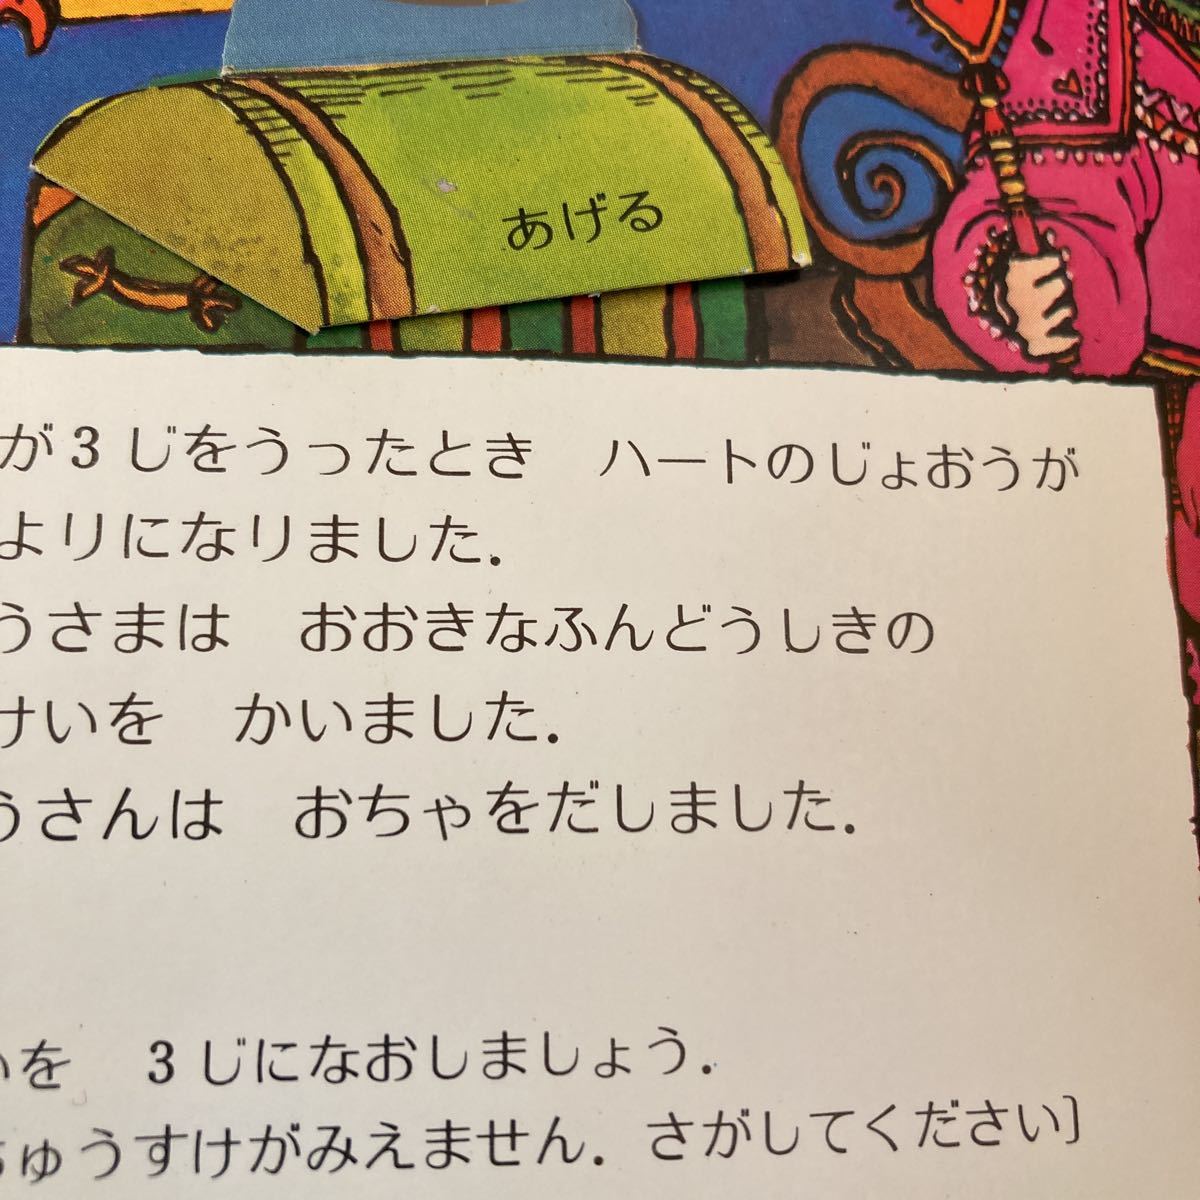 あげる
が3じをうったとき　ハートのじょおうが
よりになりました.
うさまは　おおきなふんどうしきの
けいを　かいました.
うさんは　おちゃをだしました.
いを　3じになおしましょう.
ちゅうすけがみえません. さがしてください〕